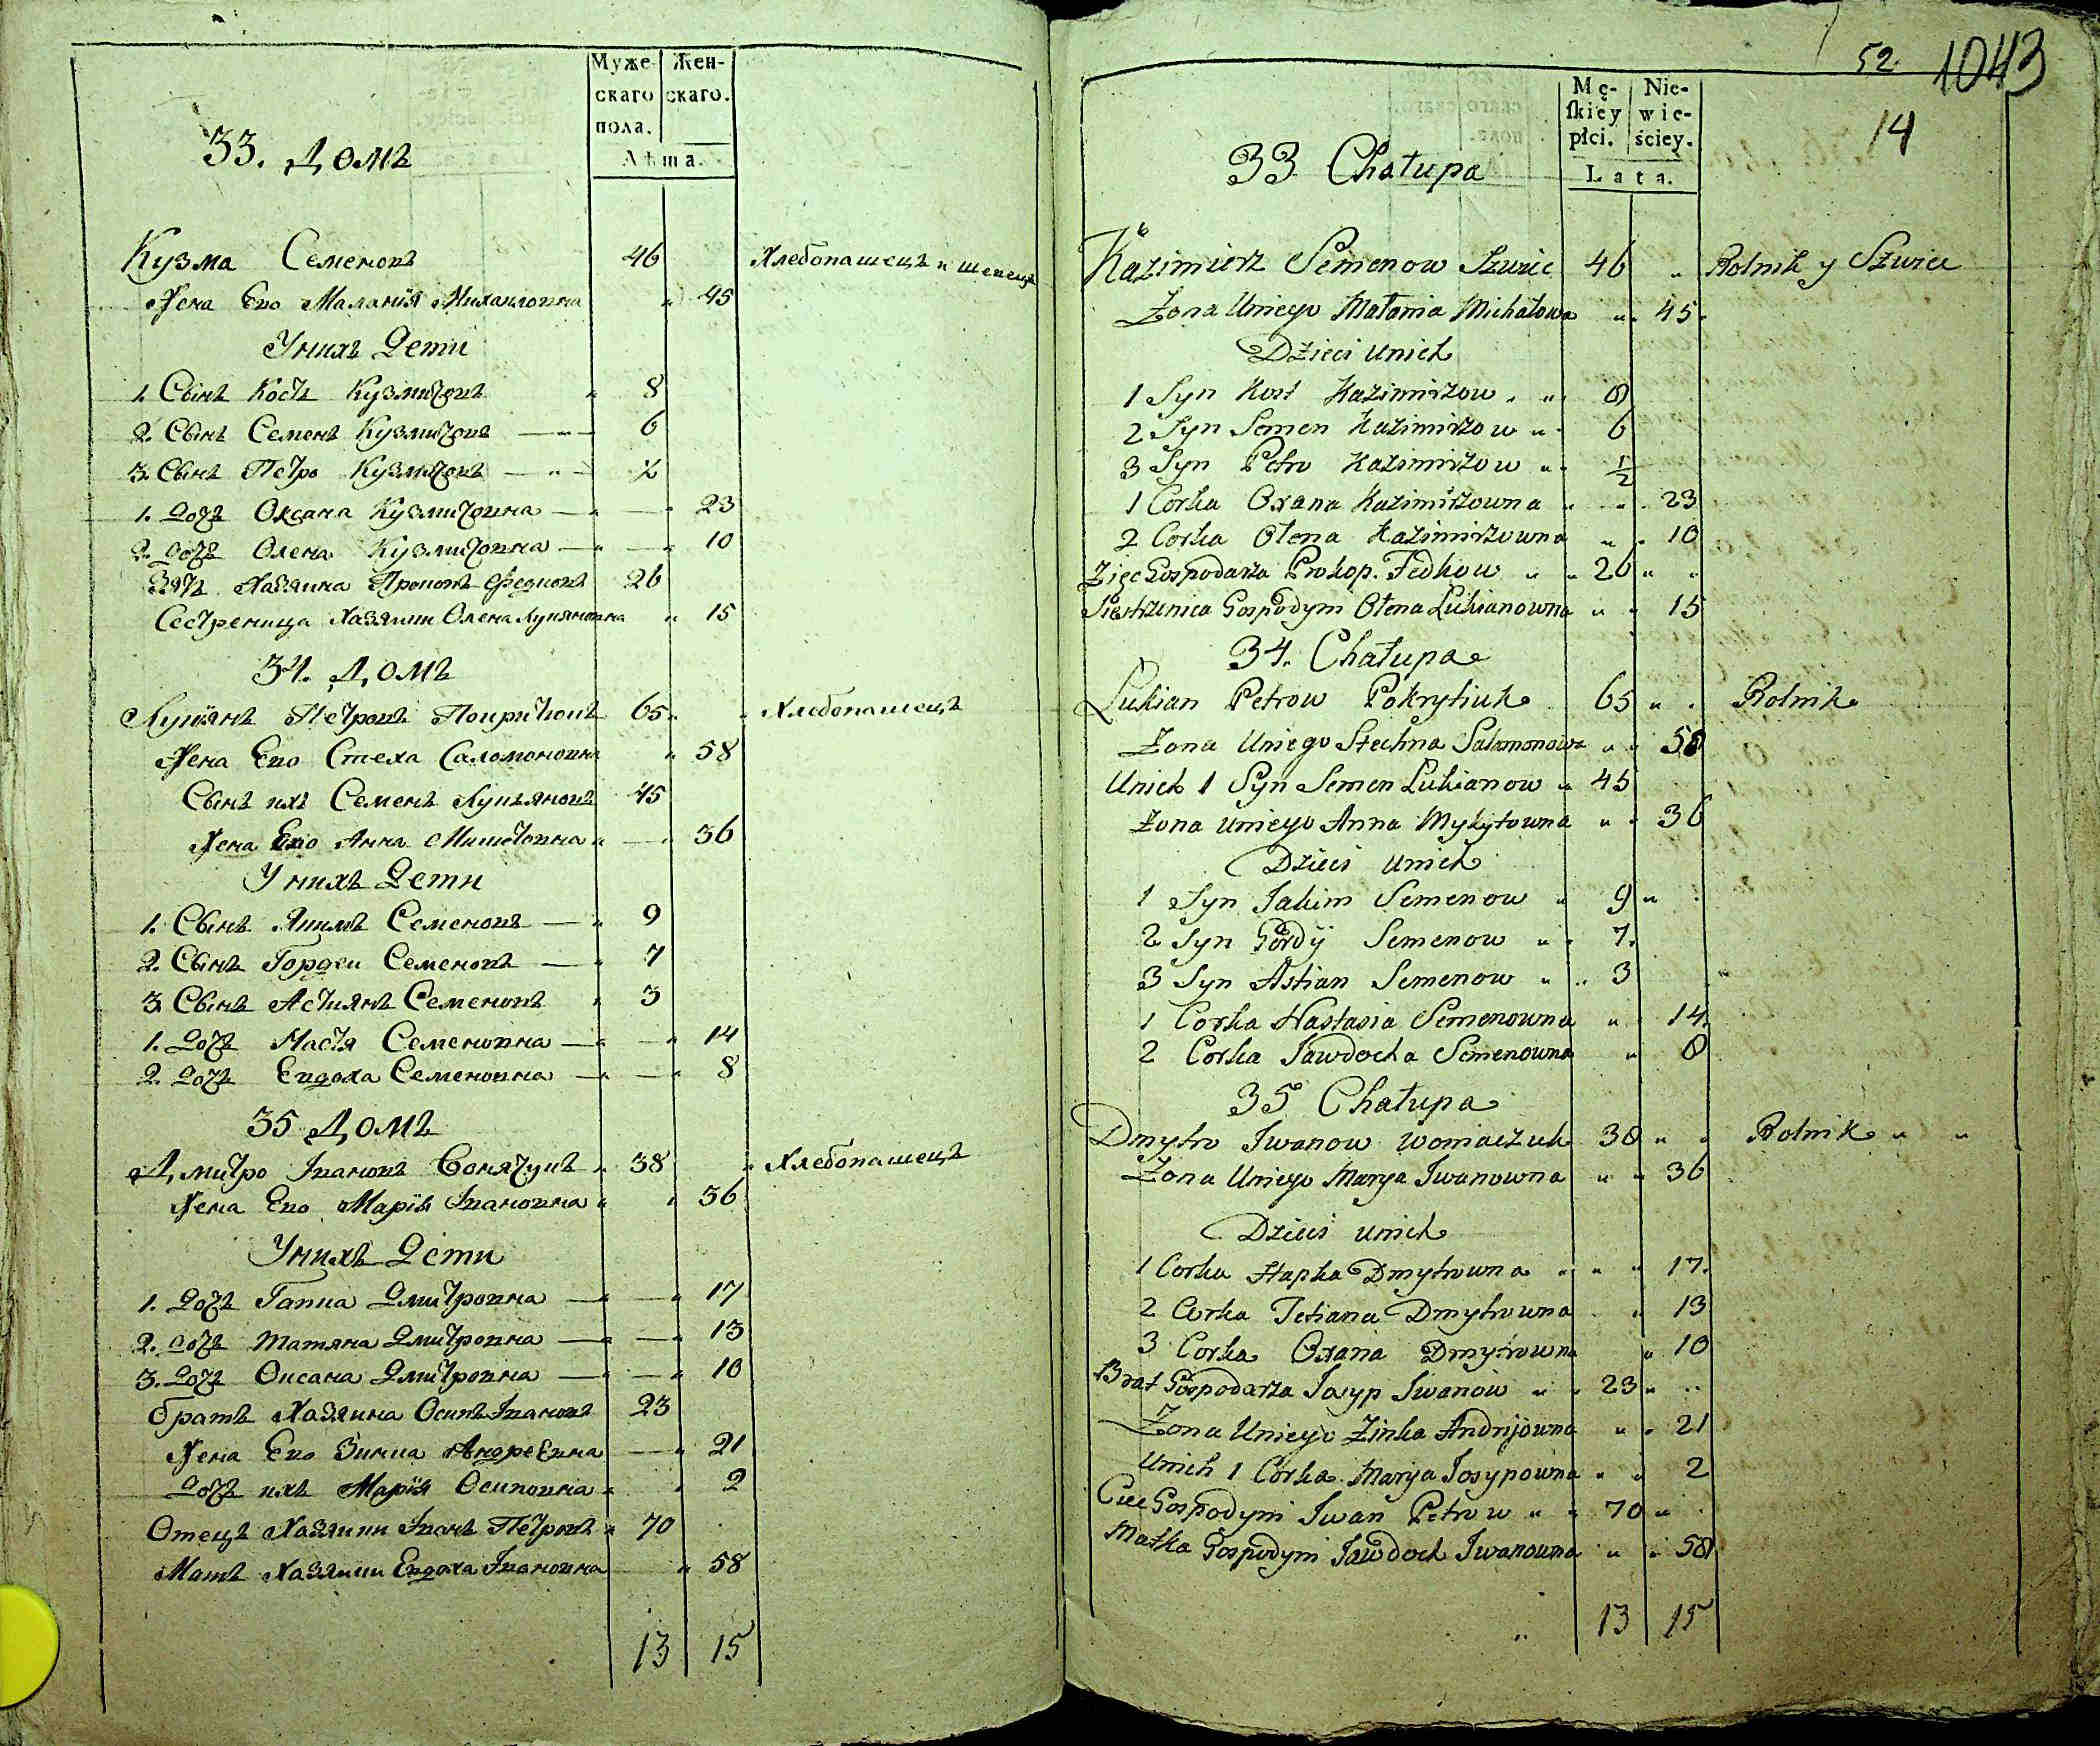 Муже- Жен-
скаго скаго.
пола.
Лѣта.
33. Домъ
Кузма Семеновъ 46 Хлебопашецъ и шевецъ
Жена Его Маланія Михаиловна " 45
У нихъ Дети
1. Сынъ Кость Кузмичовъ " 8
2. Сынъ Семенъ Кузмичовъ — " — 6
3. Сынъ Петро Кузмичовъ — " — ½
1. Дочь Оксана Кузмичовна — " — " 23
2. Дочь Олена Кузмичовна — " — " 10
Зять Хазяина Прокопъ Федковъ 26
Сестреница Хазяики Олена Лукяновна " 15
34. Домъ
Лукіянъ Петровъ Покритюкъ 65 " " Хлебопашецъ
Жена Его Стеха Саломоновна " 58
Сынъ ихъ Семенъ Лукьяновъ 45
Жена Его Анна Микитовна " — " 36
У нихъ Дети
1. Сынъ Якимъ Семеновъ — " 9
2. Сынъ Гордеи Семеновъ — " 7
3. Сынъ Астиянъ Семеновъ " 3
1. Дочь Настя Семеновна — " — " 14
2. Дочь Евдоха Семеновна — " — " 8
35 Домъ
Дмитро Івановъ Вонячукъ " 38 " Хлебопашецъ
Жена Его Марія Івановна " " 36
У нихъ Дети
1. Дочь Гапка Дмитровна — " — " 17
2. Дочь Татяна Дмитровна — " — " 13
3. Дочь Оксана Дмитровна — " — " 10
братъ Хазяина Осипъ Івановъ 23
Жена Его Зинка Андреевна — " 21
Дочь ихъ Марія Осиповна " " 2
Отецъ Хазяики Іванъ Петровъ " 70
Мать Хазяики Евдоха Івановна " 58
13 15
52. 1043
14
Mę- Nie-
skiey wie-
płci. ściey.
Lata.
33 Chałupa
Kazimierz Semenow Szwiec 46 " Rolnik y Szwiec
Żona Uniego Małania Michałowa " " 45
Dzieci Unich
1 Syn Kost Kazimirzow " " 8
2 Syn Semen Kazimirzow " " 6
3 Syn Petro Kazimirzow " " ½
1 Corka Oxana Kazimirzowna " " " 23
2 Corka Ołena Kazimirzowna " " 10
Zięc Gospodarza Prokop Fedkow " " 26 " "
Siestrzenica Gospodyni Ołena Lukianowna " " 15
34. Chałupa
Lukian Petrow Pokrytiuk 65 " " Rolnik
Żona Uniego Stechna Salamonowa " " 58
Unich 1 Syn Semen Lukianow " 45
Żona uniego Anna Mykytowna " " 36
Dzieci unich
1 Syn Jakim Semenow " 9 "
2 Syn Gordij Semenow " " 7.
3 Syn Astian Semenow " " 3 "
1 Corka Nastasia Semenowna " 14.
2 Corka Jawdocha Semenowna " 8
35 Chałupa
Dmytro Iwanow Woniaczuk 38 " " Rolnik " "
Żona Uniego Marya Iwanowna " " 36
Dzieci unich
1 Corka Hapka Dmytrowna " " " 17.
2 Corka Tetiana Dmytrowna " 13
3 Corka Oxana Dmytrowna " 10
Brat Gospodarza Josyp Iwanow " " 23 " "
Żona Uniego Zinka Andrijowna " " 21
Unich 1 Corka Marya Josypowna " " 2
Ciec Gospodyni Iwan Petrow " " 70 "
Matka Gospodyni Jawdoch Iwanowna " " 58
" 13 15